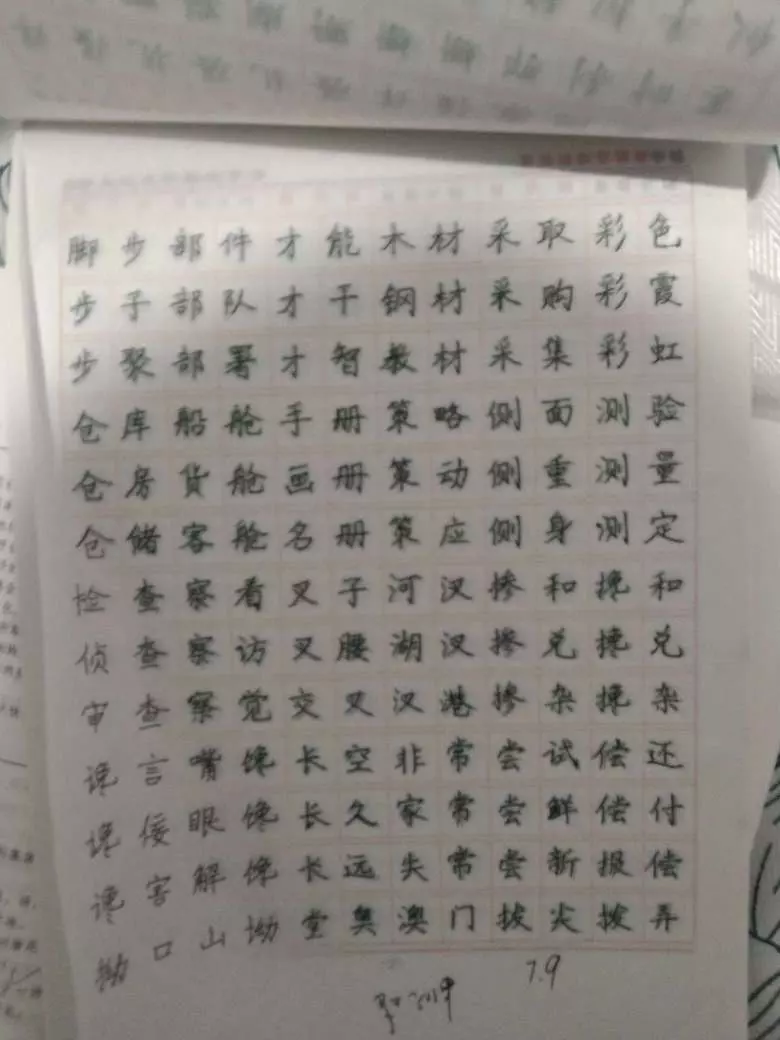 脚步部件才能木材采取彩色
步子部队才干钢材采购彩霞
步聚部署才智教材采集彩虹
仓库船舱手册策略侧面测验
仓房货舱画册策动侧重测量
仓储客舱名册策应侧身测定
检查察看叉子河汊掺和搀和
侦查察访叉腰湖汊掺兑搀兑
审查察觉交叉汊港掺杂搀杂
谗言嘴馋长空非常尝试偿还
谗佞眼馋长久家常尝鲜偿付
谗害解馋长远失常尝新报偿
拗口山坳堂奥澳门拔尖拨弄
7.9